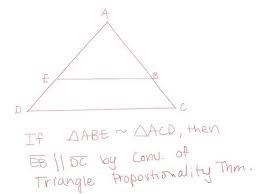 A
E
B
D
C
If △ABE ~ △ACD, then
EB || DC by Conv. of
Triangle Proportionality Thm.